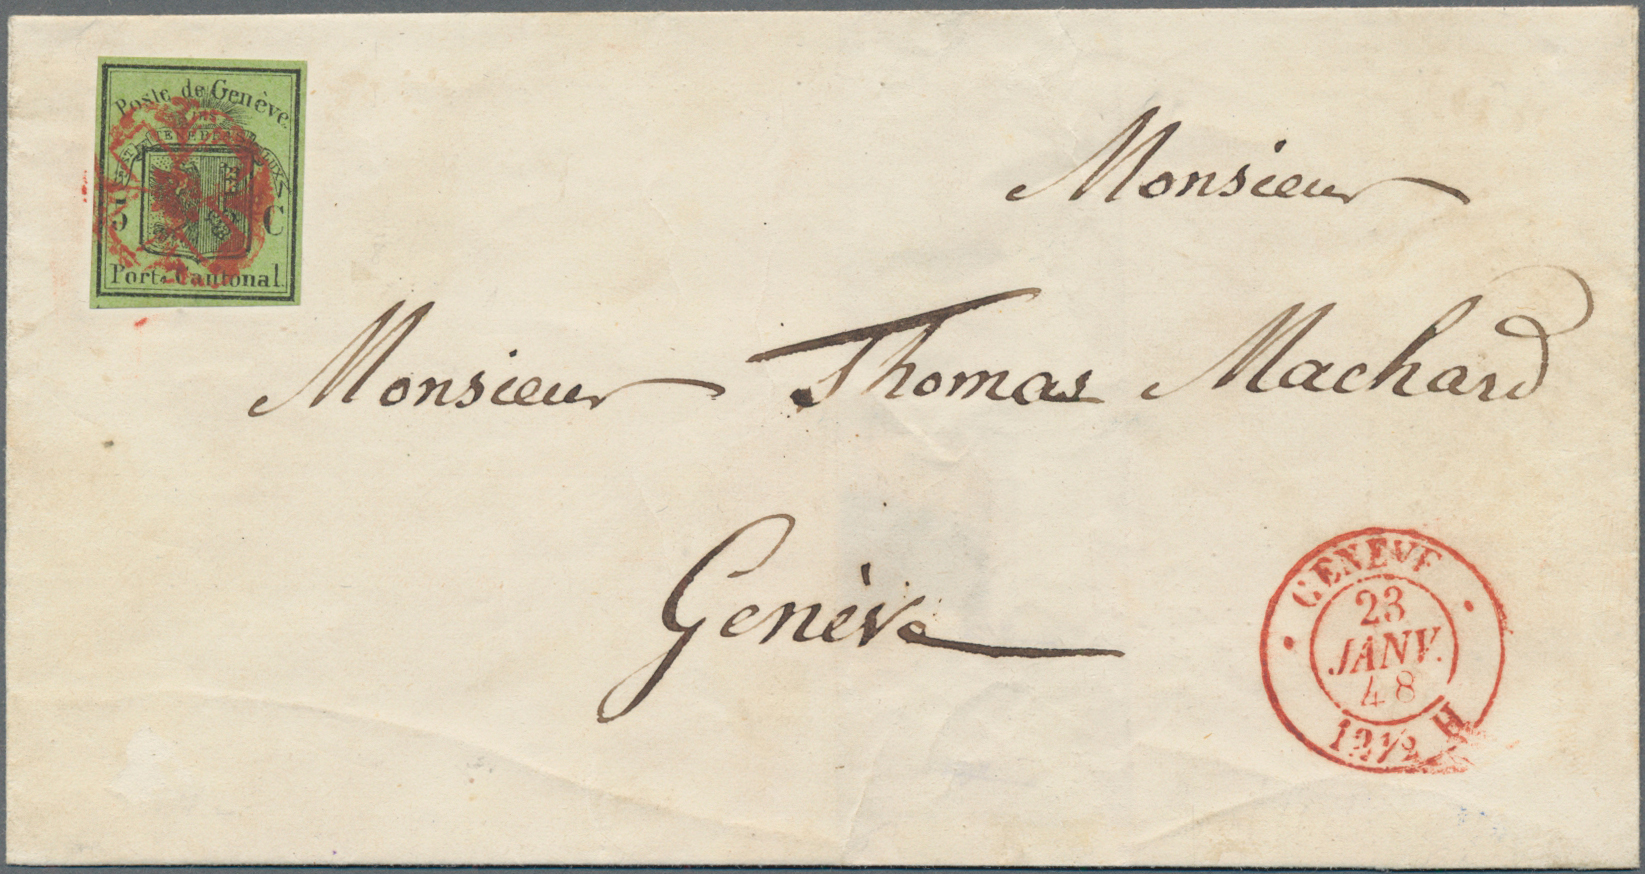 Poste de Genève
5 C
Port Cantonal
Monsieur
Monsieur Thomas Machard
Genève
GENEVE
23
JANV.
48
12½ H